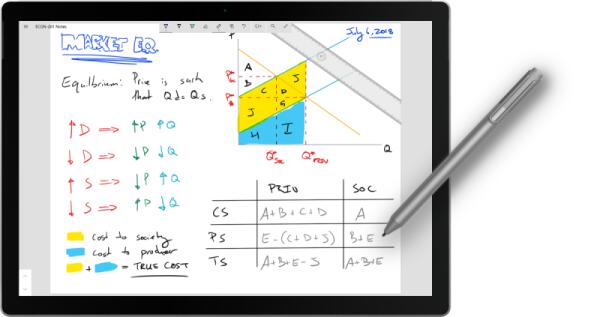 ECON-201 Notes
MARKET EQ.
July 6, 2018
Equilibrium: Price is such
that Qd = Qs.
↑D ⇒ ↑P ↑Q
↓D ⇒ ↓P ↓Q
↑S ⇒ ↓P ↑Q
↓S ⇒ ↑P ↓Q
cost to society
cost to producer
+ = TRUE COST
P
A
B
C D J
J G
H I
Q
Q*soc Q*priv
PRIV SOC
CS A+B+C+D A
PS E-(C+D+J) B+E
TS A+B+E-J A+B+E